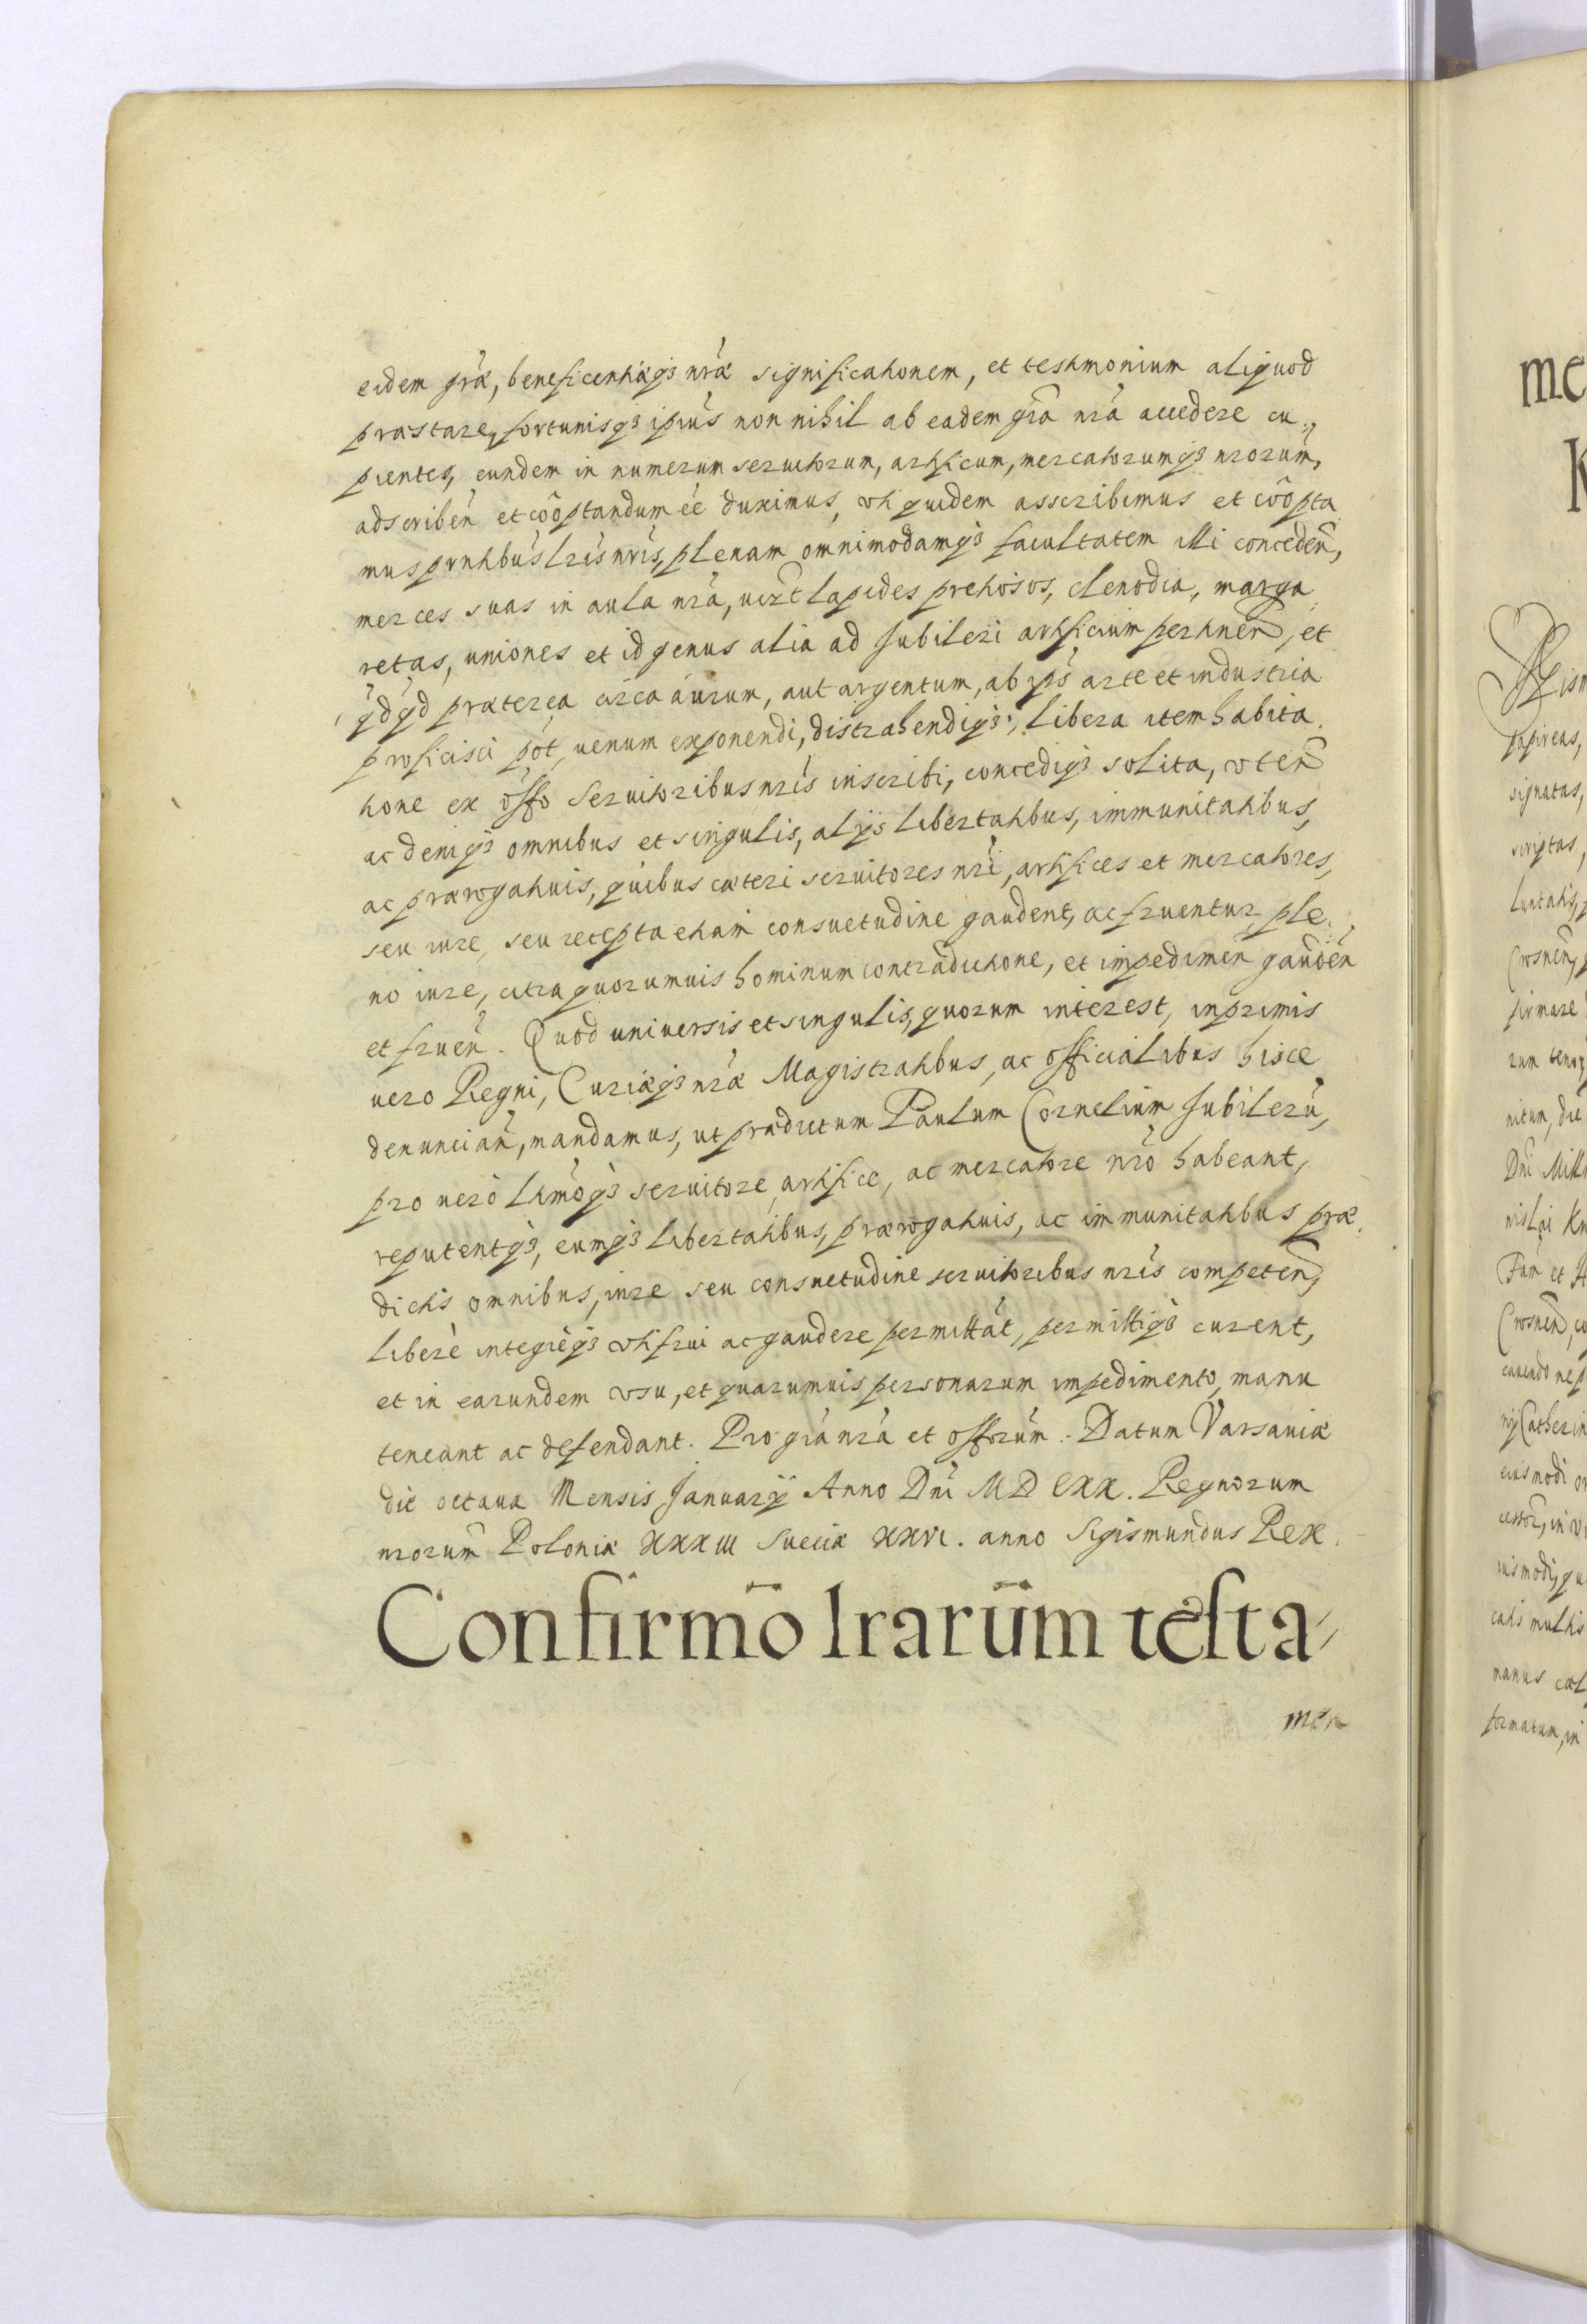 eidem gr̃æ, beneficentiæq3 nr̃æ significationem, et testimonium aliquod
præstare, fortunisq3 ipiũs non nihil ab eadem gr̃a nr̃a accedere cu.,
pientes, eundem in numerum seruitorum, artificum, mercatorumq3 nrorum̃,
adscriben̄ et cõõptandum ẽe duximus, vti quidem asscribimus et cõõpta
mus prntibus̃ lr̃is nr̃is, plenam omnimodamq3 facultatem illi conceden̄,
merces suas in aula nr̃a, uizt̃ lapides pretiosos, clenodia, marga.
retas, uniones et id genus alia ad Jubileri artificium pertinen̄, et
q̃dq̃d præterea circa aurum, aut argentum, ab ip̃s arte et industria
proficisci põt, uenum exponendi, distrahendiq3, libera item habita.
tione ex õffo seruitoribus nr̃is inscribi, concediq3 solita, vten̄
ac deniq3 omnibus et singulis, alijs libertatibus, immunitatibus,
ac prærogatiuis, quibus cæteri seruitores nr̃i, artifices et mercatores,
seu iure, seu recepta etiam consuetudine gaudent, ac fruentur ple.,
no iure, citra quorumuis hominum contradictione, et impedimen̄ gauden̄
et fruen̄. Quod uniuersis et singulis, quorum interest, inprimis
uero Regni, Curiæq3 nr̃æ Magistratibus, ac officialibus hisce
denuncian̄, mandamus, ut prædictum Paulum Cornelium Jubilerũ,
pro uero ltim̃oq3 seruitore, artifice, ac mercatore nr̃o habeant,
reputentq3, eumq3 libertatibus, prærogatiuis, ac immunitatibus præ.
dictis omnibus, iure seu consuetudine seruitoribus nr̃is competen̄,
liberè integrèq3 vti frui ac gaudere permittãt, permittiq3 curent,
et in earundem vsu, et quarumuis personarum impedimento, manu
teneant ac defendant. Pro gr̃a nr̃a et off̃orum̃. Datum Varsauiæ
die octaua Mensis Januarij Anno Dñi MDCXX. Regnorum
nrorum̃ Poloniæ XXXIII Sueciæ XXVI. anno Sigismundus Rex.
Confirmõ lrarum̃ testa
men